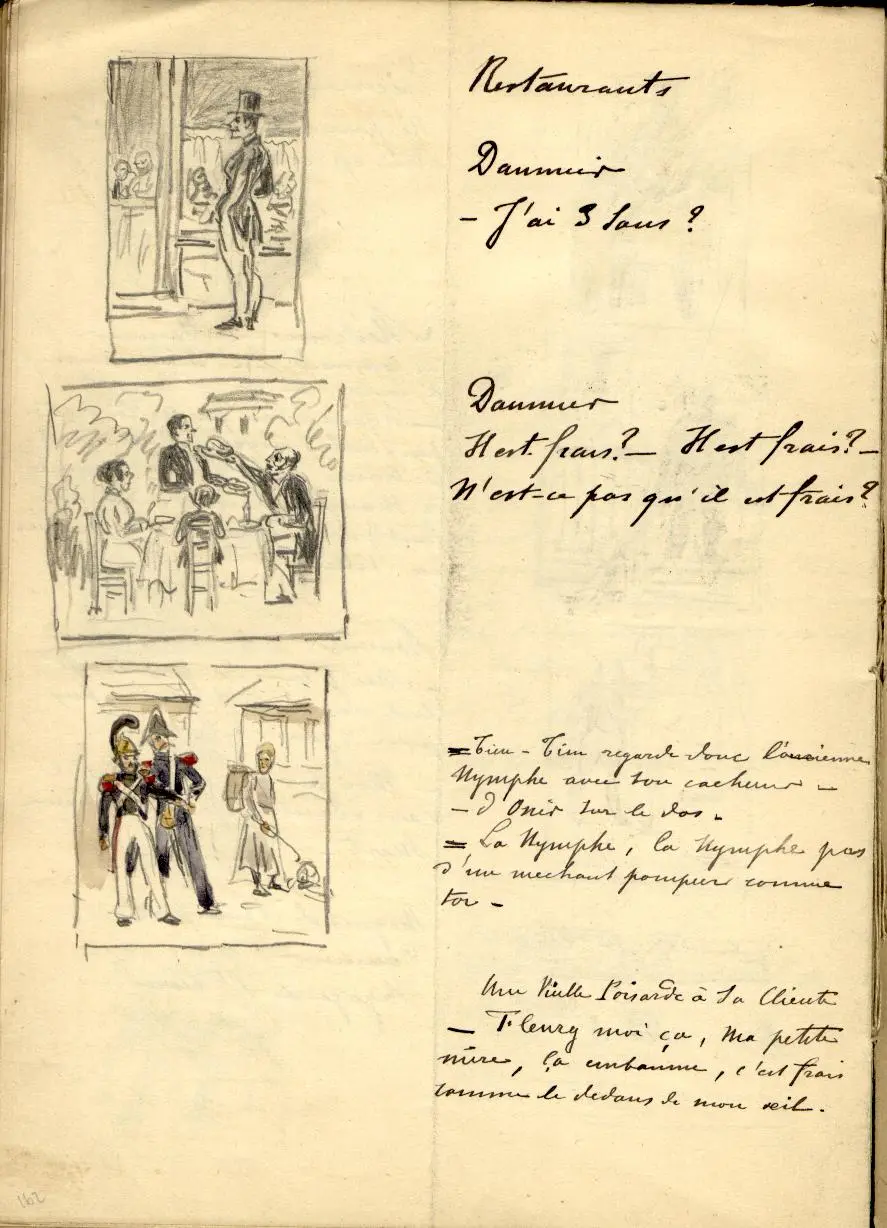 Restaurants
Daumier
- J'ai 3 Sous ?
Daumier
Il est frais? — Il est frais? —
N'est-ce pas qu'il est frais?
= Tien - Tien regarde donc l'ancienne
Nymphe avec son cacheur —
- d'Osier sur le dos -
= La Nymphe, la Nymphe pas
d'un mechant pompier comme
toi -
Une Vielle Poisarde à Sa Cliente
— Fleurez moi ça, Ma petite
mère, ça embaume, c'est frais
comme le dedans de mon œil.
162